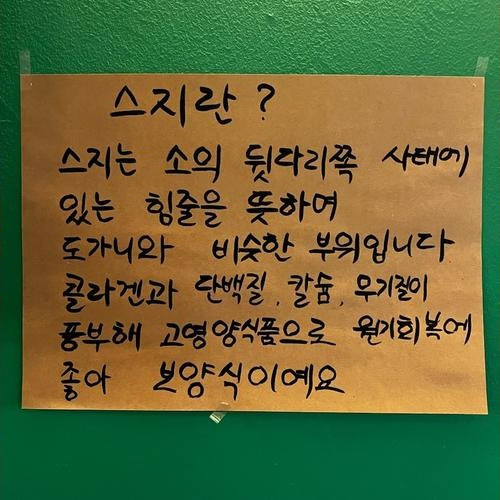 스지란?
스지는 소의 뒷다리쪽 사태에
있는 힘줄을 뜻하며
도가니와 비슷한 부위입니다
콜라겐과 단백질, 칼슘, 무기질이
풍부해 고영양식품으로 원기회복에
좋아 보양식이예요